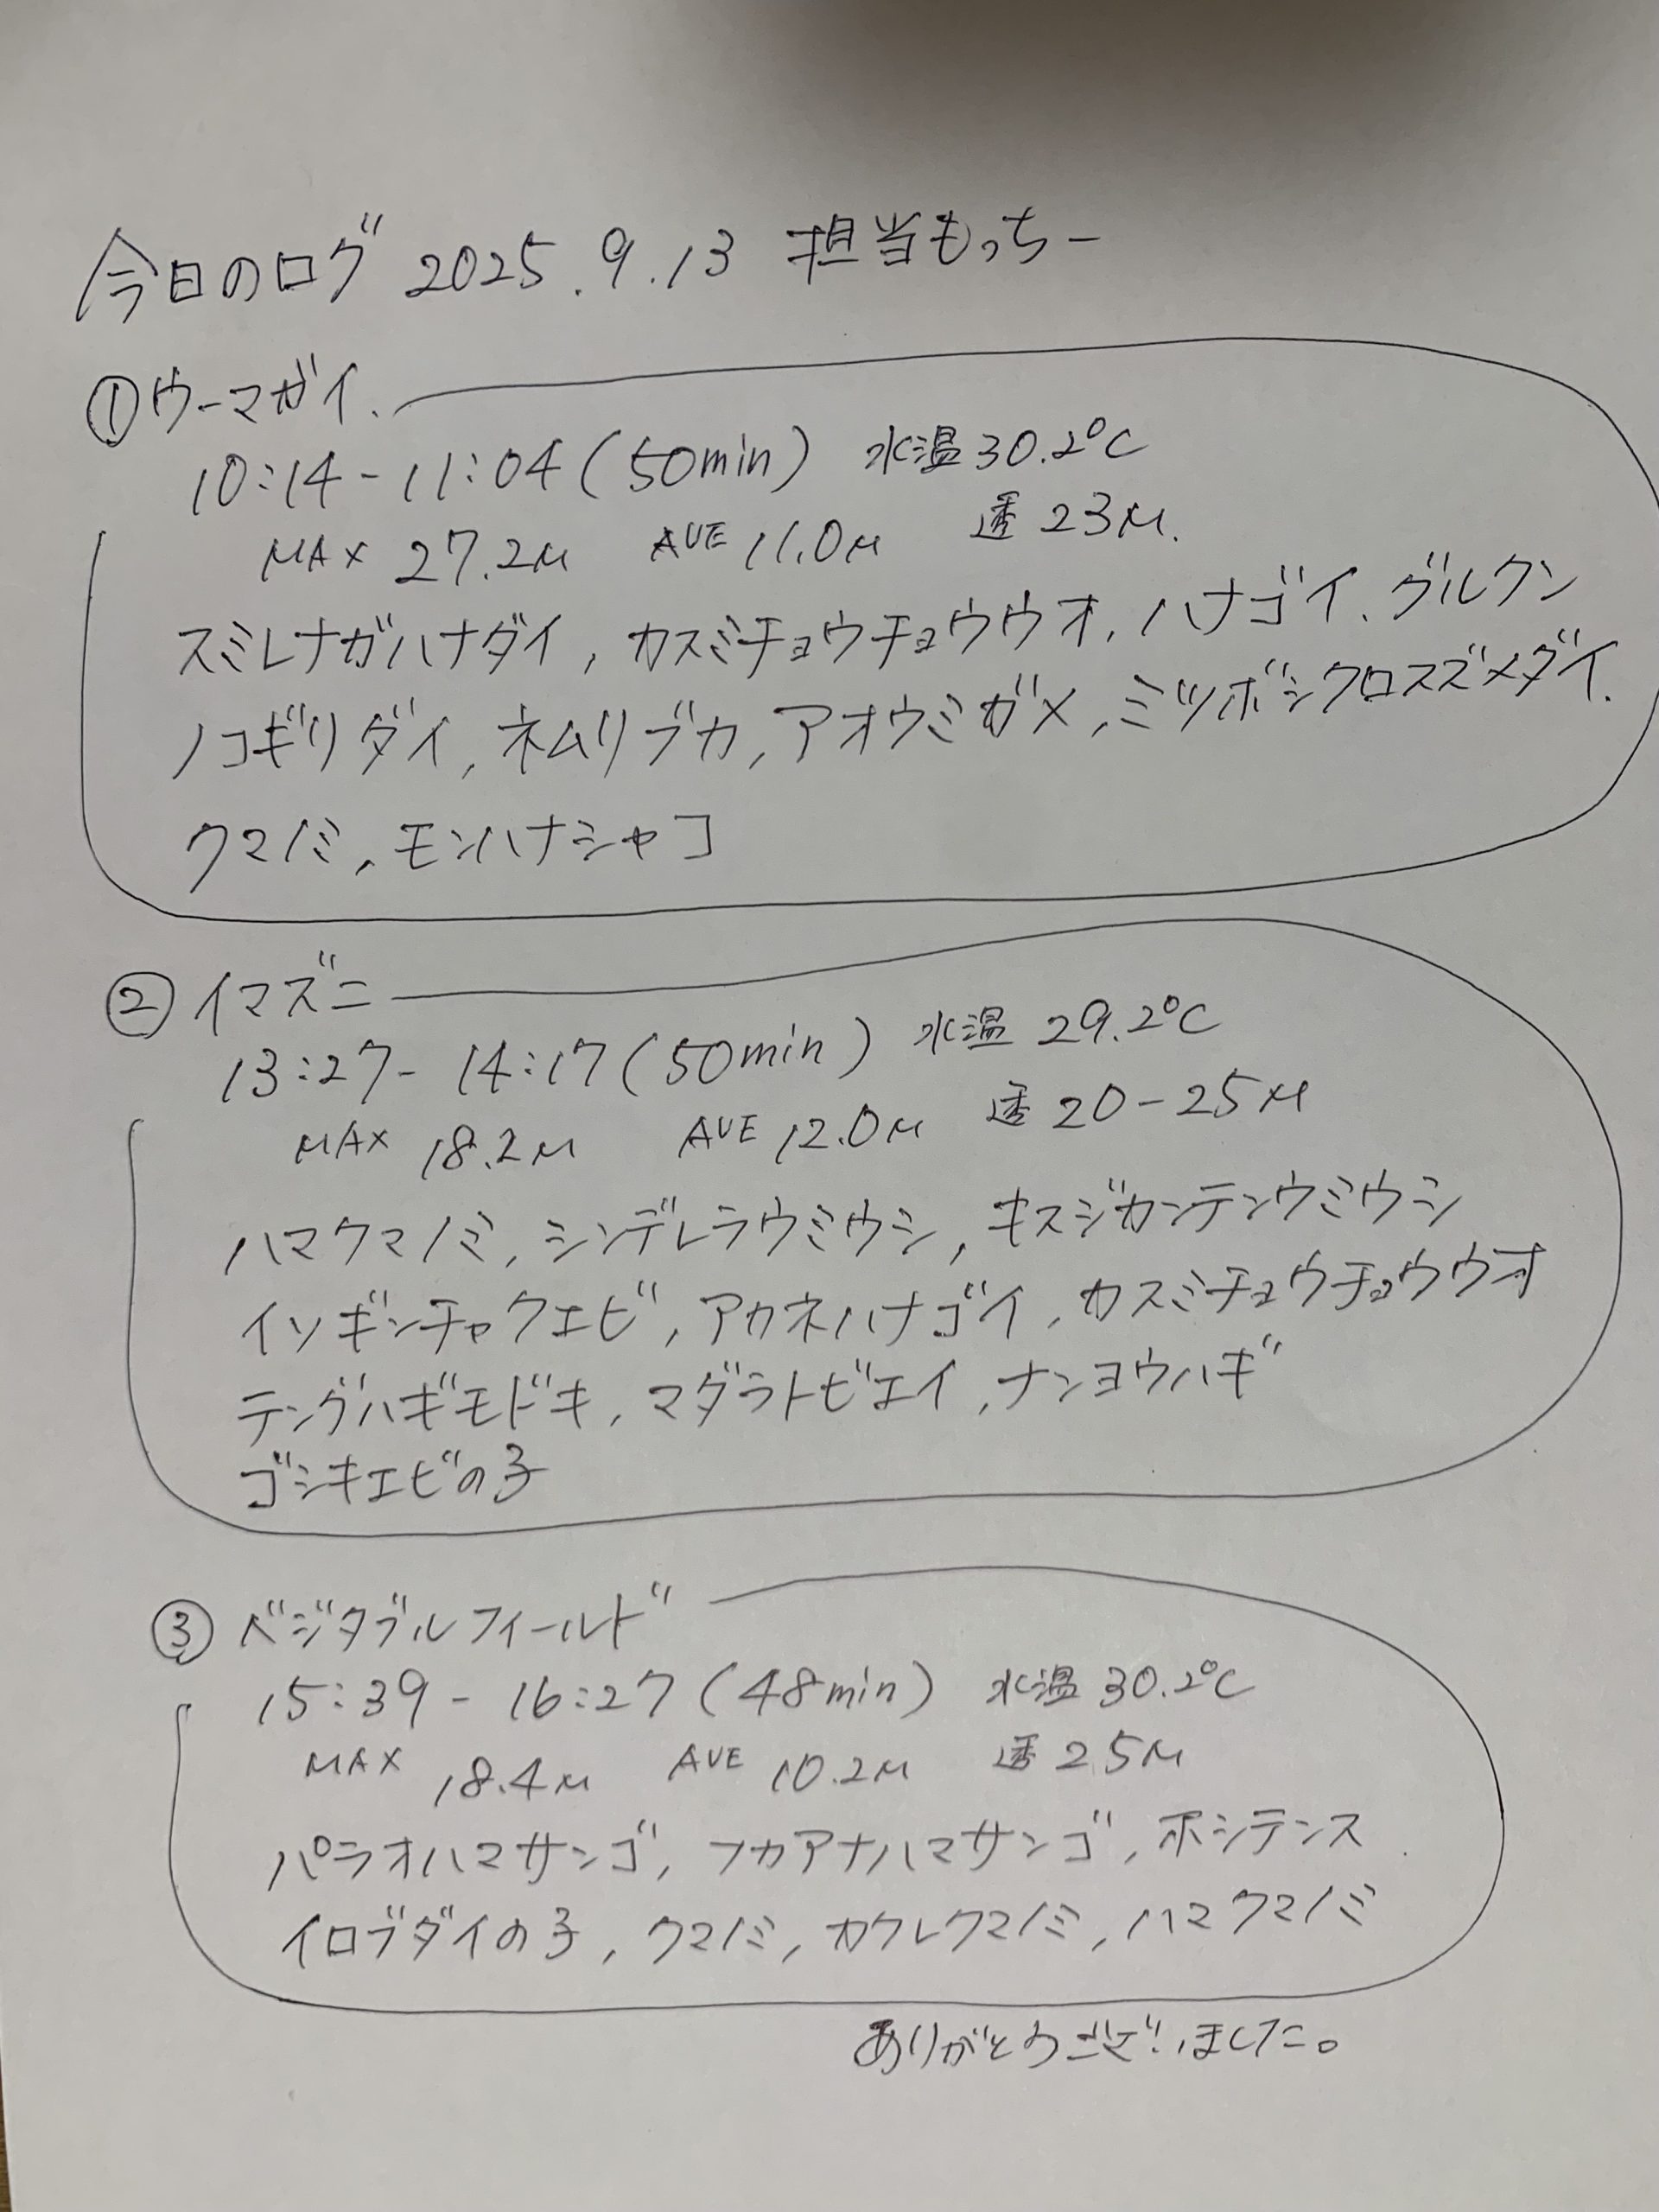 今日のログ 2025.9.13 担当もっちー
①ウーマガイ.
10:14-11:04(50min) 水温30.2℃
MAX 27.2M AVE 11.0M 透23M.
スミレナガハナダイ, カスミチョウチョウウオ, ハナゴイ, グルクン
ノコギリダイ, ネムリブカ, アオウミガメ, ミツボシクロスズメダイ.
クマノミ, モンハナシャコ
②イマズニ
13:27-14:17(50min) 水温 29.2℃
MAX 18.2M AVE 12.0M 透20-25M
ハマクマノミ, シンデレラウミウシ, キスジカンテンウミウシ
イソギンチャクエビ, アカネハナゴイ, カスミチョウチョウウオ
テングハギモドキ, マダラトビエイ, ナンヨウハギ
ゴシキエビの子
③ベジタブルフィールド
15:39-16:27(48min) 水温30.2℃
MAX 18.4M AVE 10.2M 透25M
パラオハマサンゴ, フカアナハマサンゴ, ホシテンス
イロブダイの子, クマノミ, カクレクマノミ, ハマクマノミ
ありがとうございました。